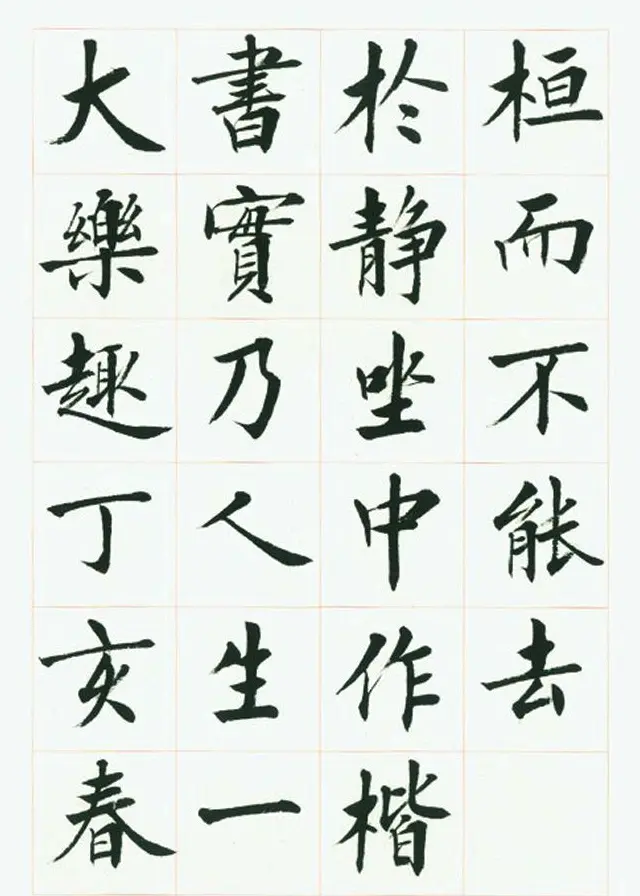 桓而不能去
於静坐中作楷
書實乃人生一
大樂趣丁亥春